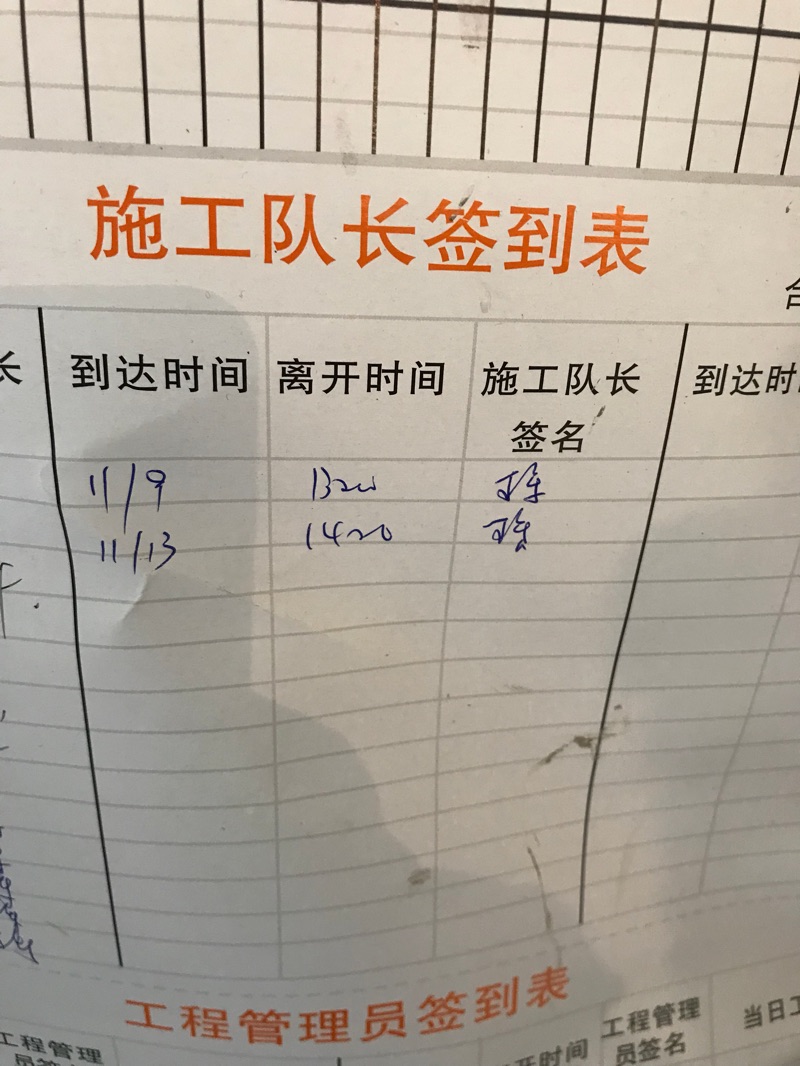 施工队长签到表
合
长 到达时间 离开时间 施工队长 到达时
签名
11/9 1320
11/13 1420
工程管理员签到表
工程管理 开时间 工程管理 当日工
员签 员签名